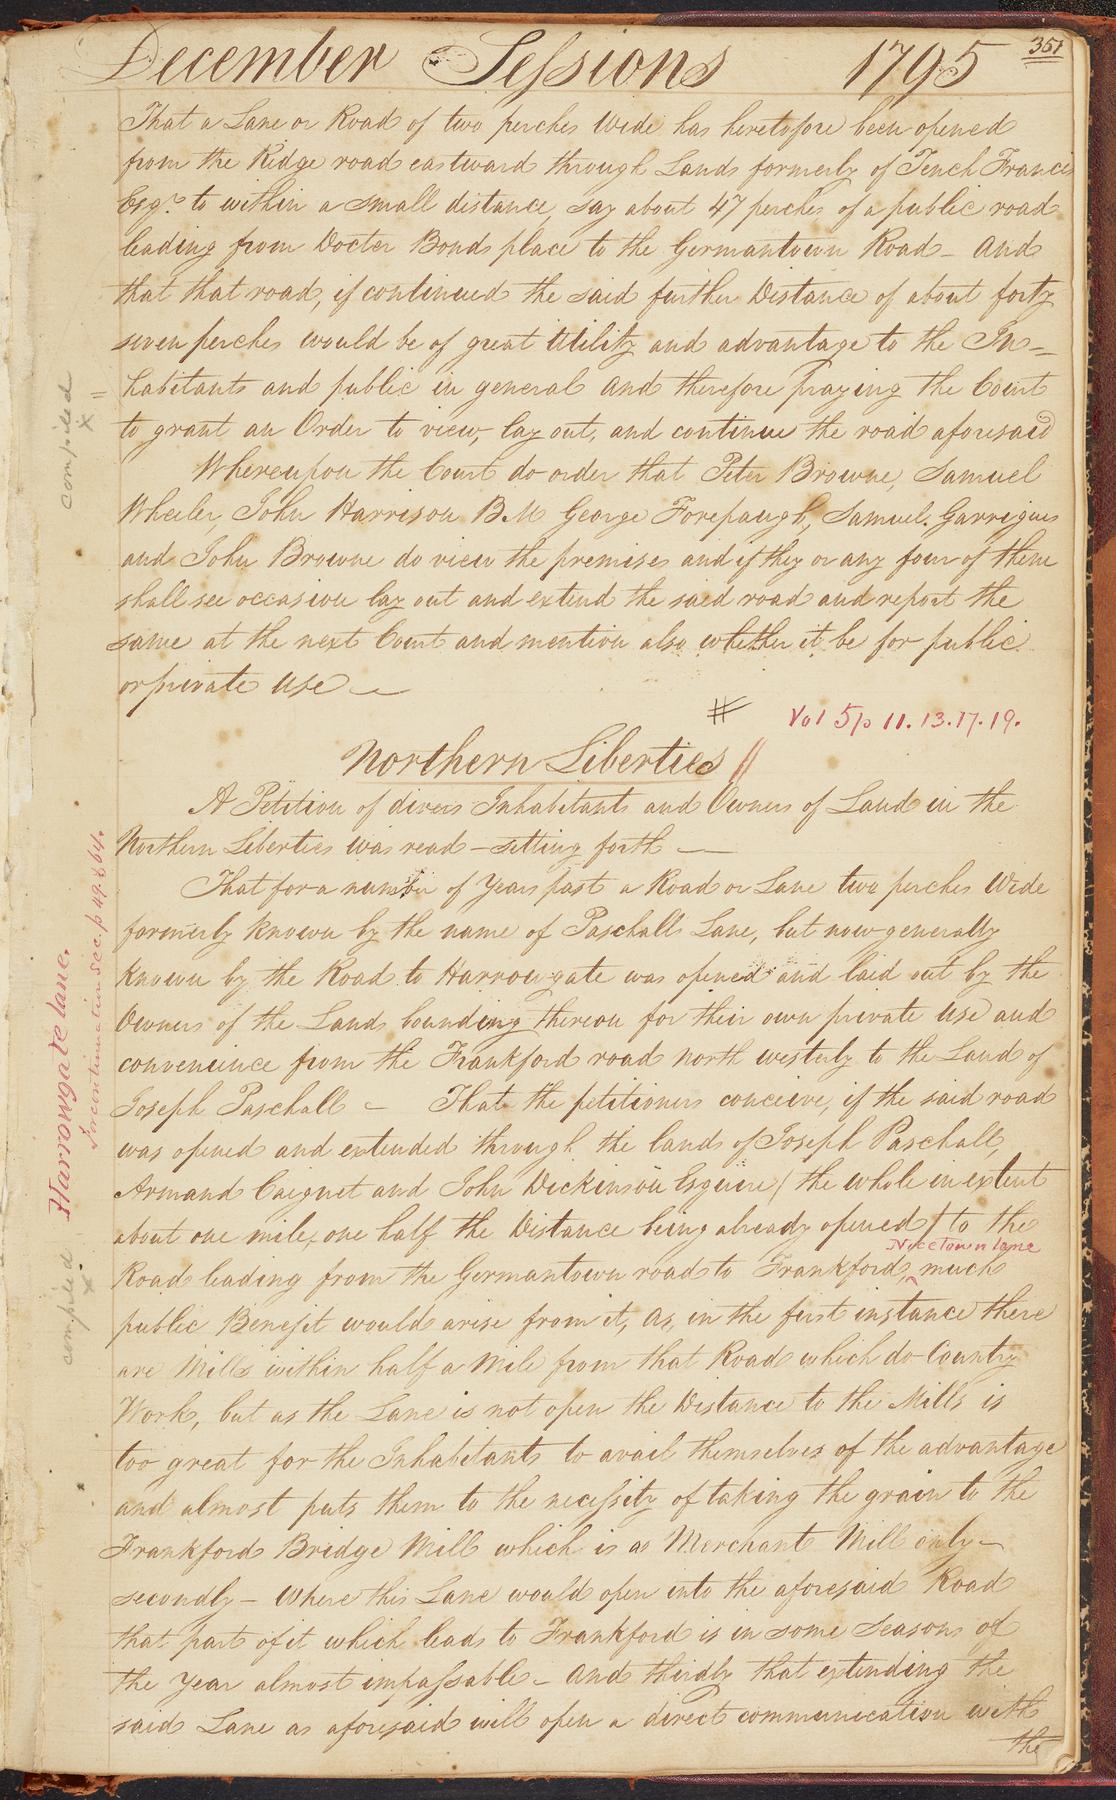 December Sessions 1795
351
That a Lane or Road of two perches Wide has heretofore been opened
from the Ridge road eastward through Lands formerly of Tench Francis
Esqr. to within a small distance, say about 47 perches of a public road
leading from Docter Bonds place to the Germantown Road - And
that that road, if continued the said further Distance of about forty
seven perches would be of great Utility and advantage to the In=
=habitants and public in general and therefore praying the Court
to grant an Order to view, lay out, and continue the road aforesaid
Whereupon the Court do order that Peter Browne, Samuel
Wheeler, John Harrison B.M George Forepaugh, Samuel Garrigues
and John Browne do view the premises and if they or any four of them
shall see occasion lay out and extend the said road and report the
same at the next Court and mention also whether it be for public
or private use
compiled
x
# Vol 5 p 11. 13. 17. 19.
Northern Liberties //
A Petition of divers Inhabitants and Owners of Land in the
Northern Liberties was read - setting forth
That for a number of Years past a Road or Lane two perches Wide
formerly known by the name of Paschalls Lane, but now generally
known by the Road to Harrowgate was opened and laid out by the
Owners of the Lands bounding thereon for their own private Use and
convenience from the Frankford road north westerly to the Land of
Joseph Paschall - That the petitioners conceive, if the said road
was opened and extended through the lands of Joseph Paschall,
Armand Caignet and John Dickinson Esquire / the whole in extent
about one mile, one half the Distance being already opened / to the
Nicetown lane
Road leading from the Germantown road to Frankford, ^ much
public Benefit would arise from it, As, in the first instance there
are Mills within half a Mile from that Road which do Country
Work, but as the Lane is not open the Distance to the Mills is
too great for the Inhabitants to avail themselves of the advantage
and almost puts them to the necessity of taking the grain to the
Frankford Bridge Mill which is a Merchant Mill only -
secondly - Where this Lane would open into the aforesaid Road
that part of it which leads to Frankford is in some Seasons of
the Year almost impassable - And thirdly that extending the
said Lane as aforesaid will open a direct communication with
the
Harrowgate lane.
For continuation see p 49 & 64.
compiled
x